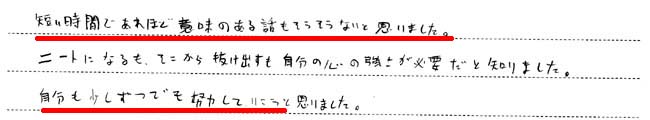 短い時間であれほど意味のある話もそうそうないと思いました。
ニートになるも、そこから抜け出すも自分の心の強さが必要だと知りました。
自分も少しずつでも努力していこうと思りました。